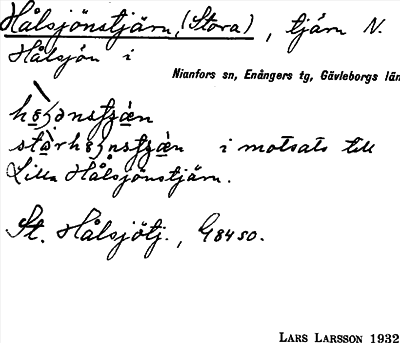 Hålsjönstjärn, (Stora), tjärn N.
Hålsjön i
Nianfors sn, Enångers tg, Gävleborgs län
i motsats till
Lilla Hålsjönstjärn.
St. Hålsjötj., G84SO.
LARS LARSSON 1932